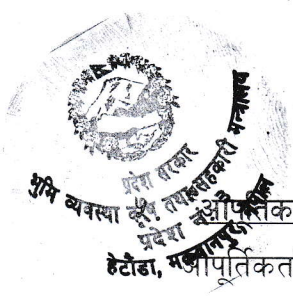 प्रदेश सरकार
भूमि व्यवस्था कृषि तथा सहकारी मन्त्रालय
प्रदेश नं. ३
हेटौंडा, मकवानपुर, नेपाल
औपूर्तिकत